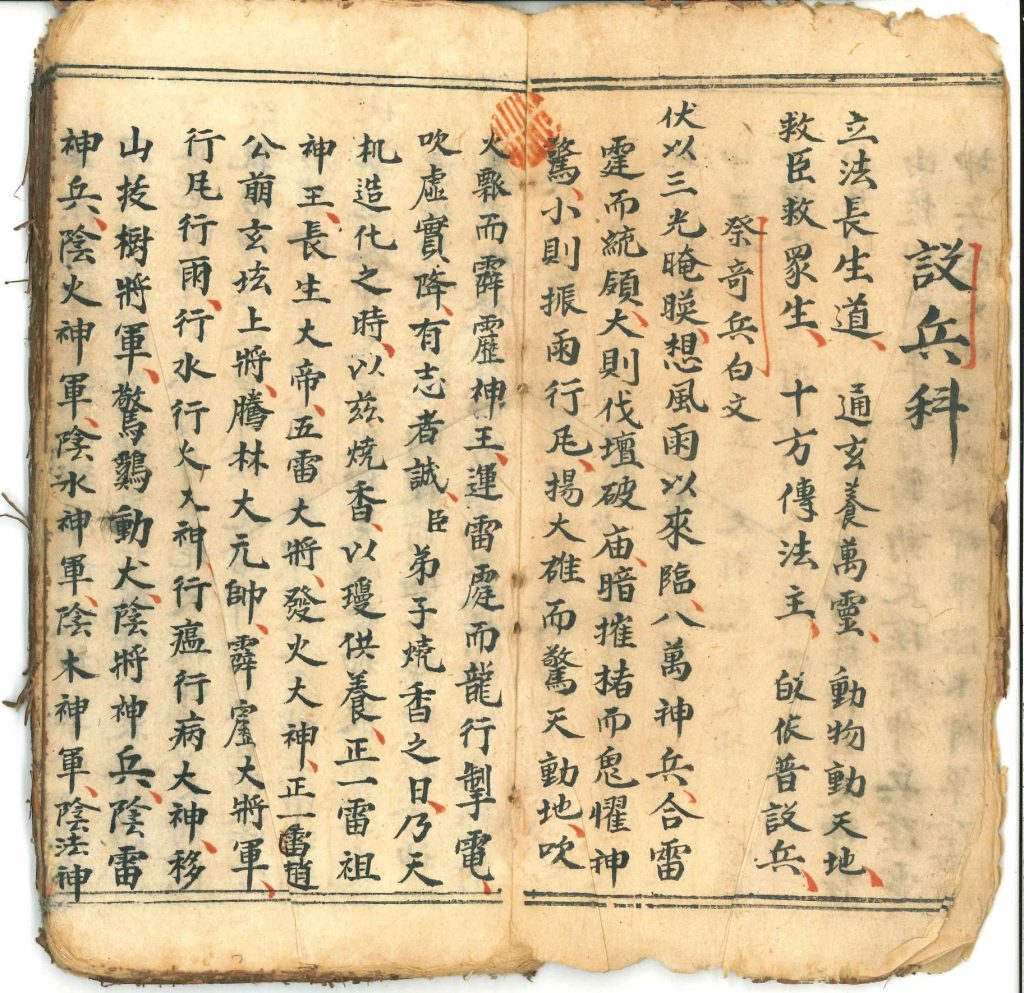 設兵科
立法長生道、 通玄養萬靈、 動物動天地、
救臣救眾生、 十方傳法主、 皈依普設兵、
祭奇兵白文
伏以三光晻暎、想風雨以來臨、八萬神兵、合雷
霆而統領、大則伐壇破庙、暗摧 而鬼懼神
驚、小則振雨行 、揚大碓而驚天動地、吹
火 而霹靂神王、運雷霆而龍行掣電、
吹虛實降、有志者誠、臣弟子燒香之日、乃天
机造化之時、以兹燒香、以瓊供養、正一雷祖
神王、長生大帝、五雷大將、發火大神、正一雷
公 玄坛上將、騰林大元帥、霹 大將軍、
行 行雨、行水行火大神、行瘟行病大神、移
山拔樹將軍、驚鷄動犬、陰將神兵、陰雷
神兵、陰火神軍、陰水神軍、陰木神軍、陰法神